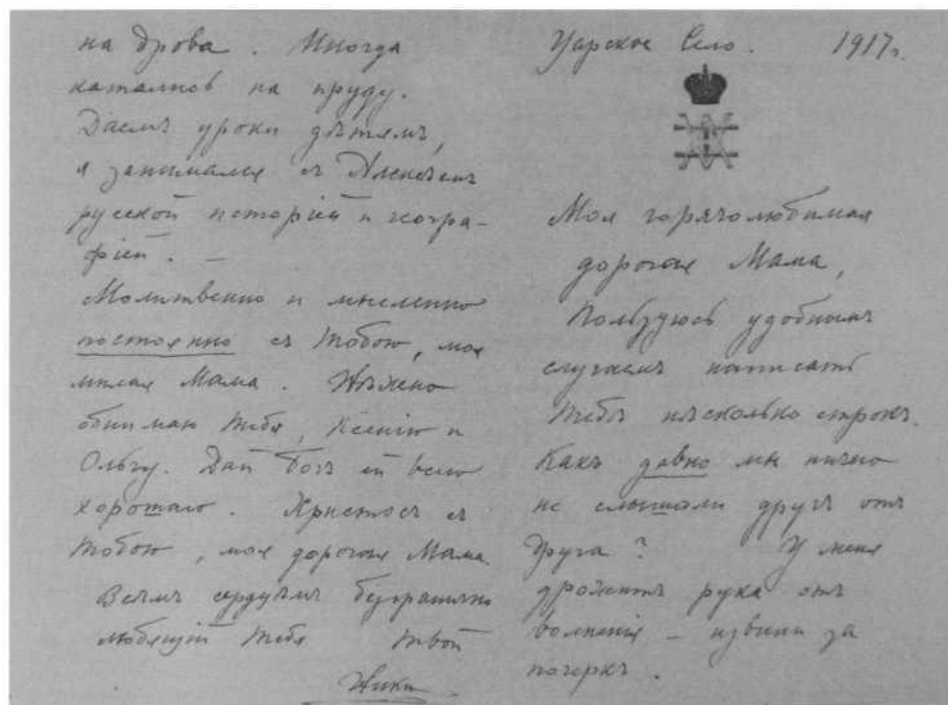 на дрова. Иногда
на пруду.
Даемъ уроки дѣтямъ,
я занимаюсь съ Алексѣемъ
русской исторіей и геогра-
фіей. —
Молитвенно и мысленно
постоянно съ Тобою, моя
милая Мама. Нѣжно
обнимаю Тебя, Ксенію и
Ольгу. Дай Богъ ей всего
хорошаго. Христосъ съ
Тобою, моя дорогая Мама.
Всѣмъ сердцемъ безгранично
любящій Тебя Твой
Ники.
Царское Село. 1917г.
Моя горячо любимая
дорогая Мама,
Пользуюсь удобнымъ
случаемъ написать
Тебѣ нѣсколько строкъ.
Какъ давно мы ничего
не слышали другъ отъ
друга? У меня
дрожитъ рука отъ
волненія — извини за
почеркъ.